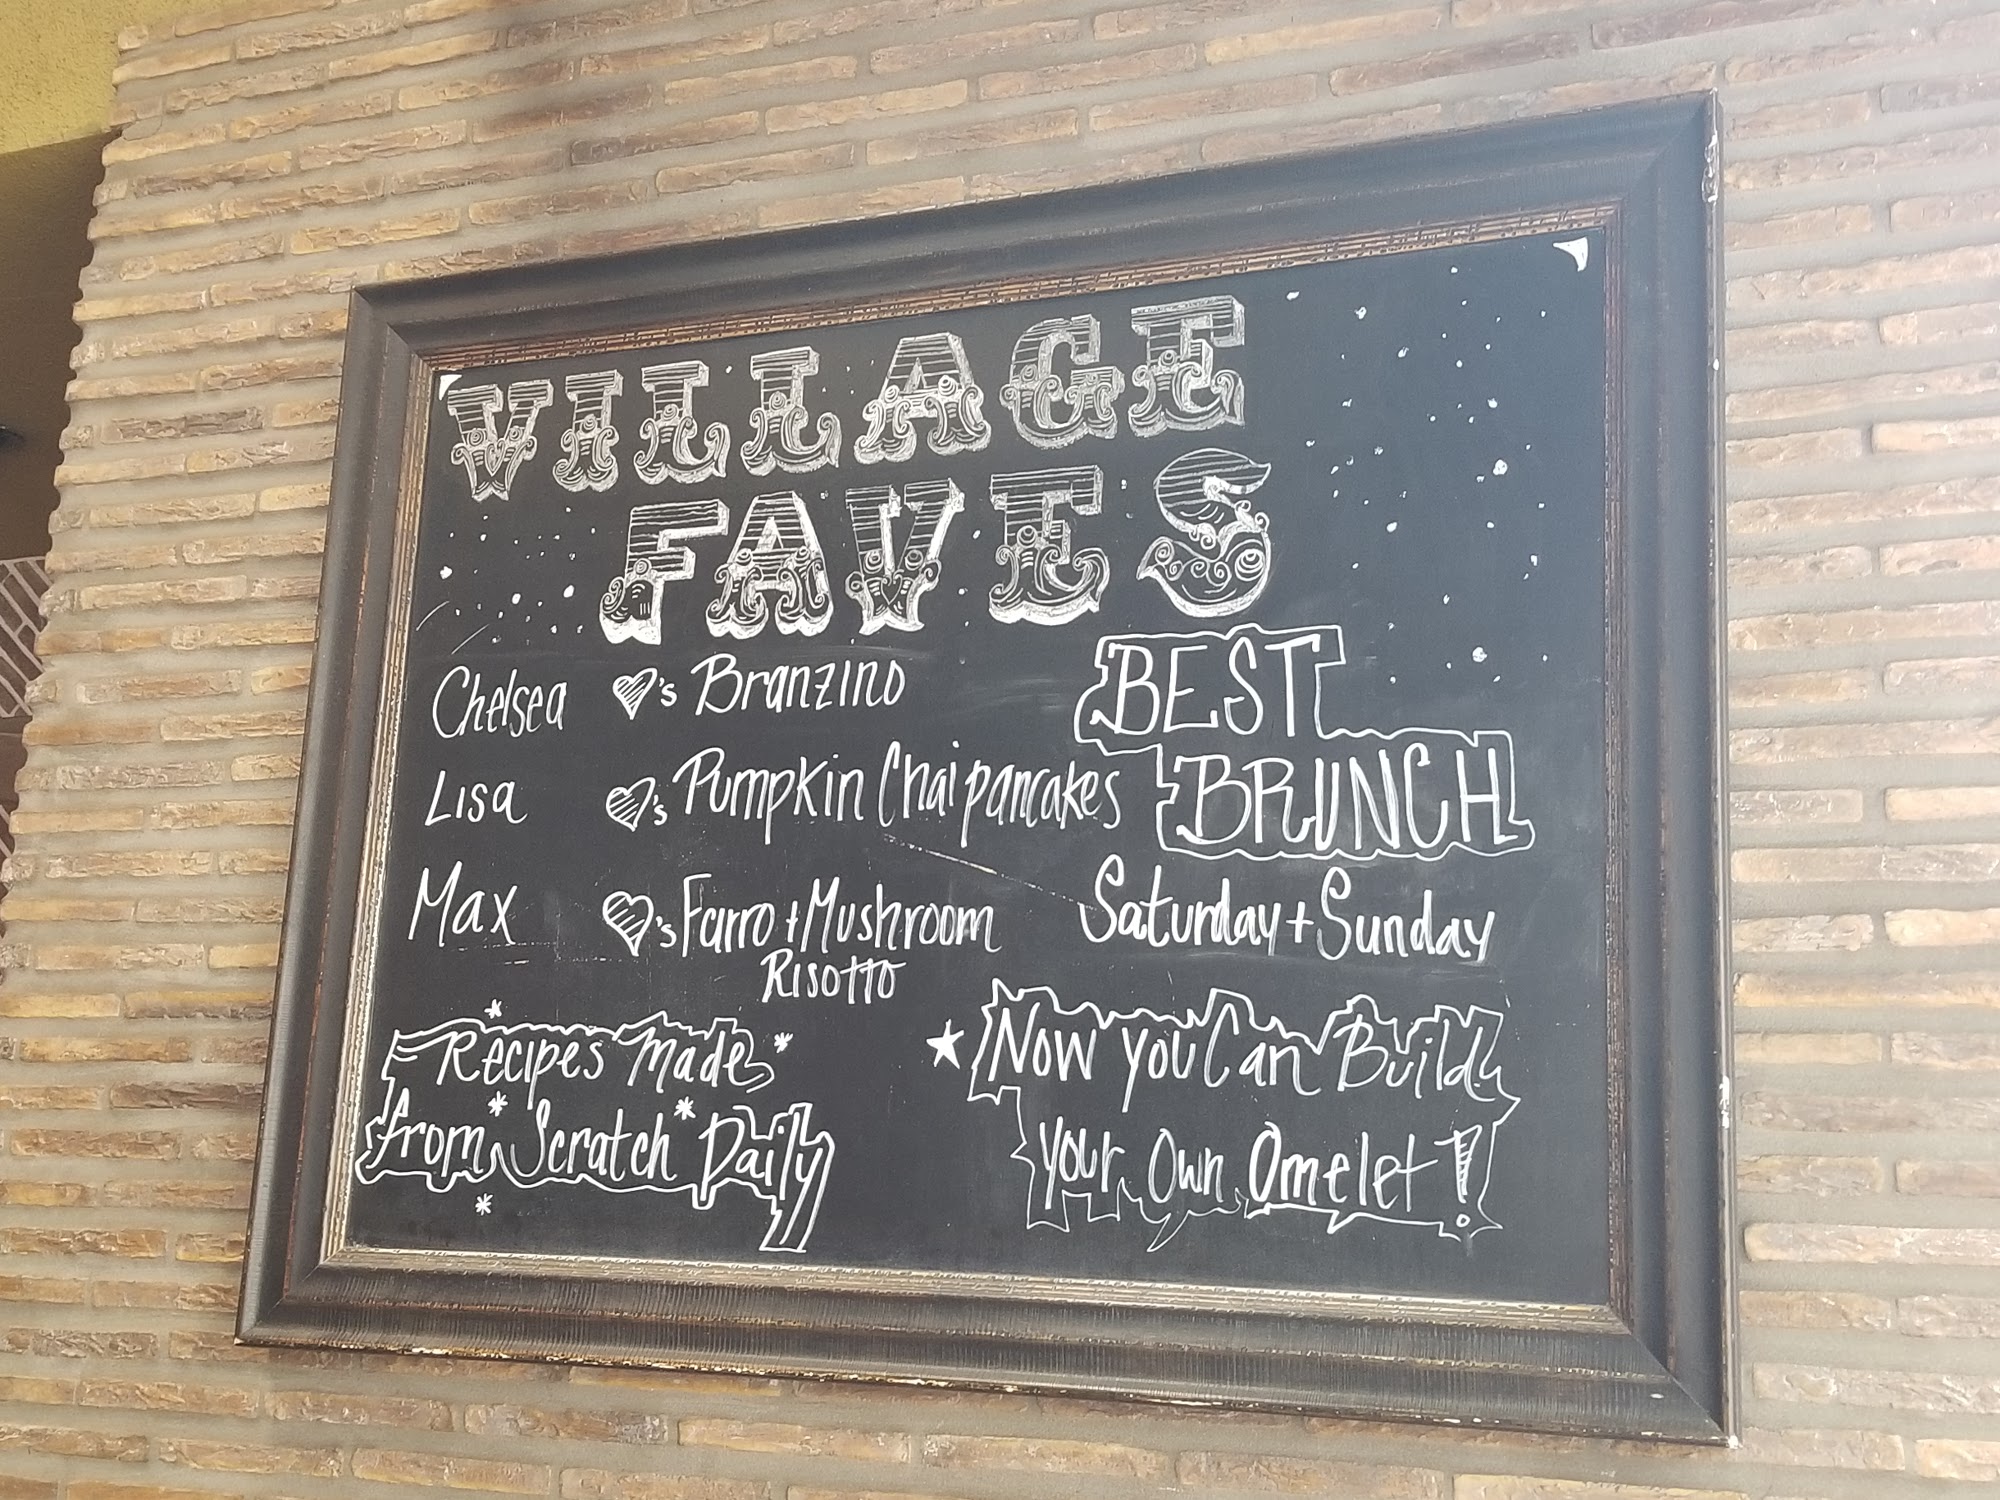 VILLAGE
FAVES
Chelsea ♥'s Branzino
Lisa ♥'s Pumpkin Chai pancakes
Max ♥'s Farro + Mushroom
Risotto
BEST
BRUNCH
Saturday + Sunday
Recipes Made
from Scratch Daily
★ Now you Can Build
your Own Omelet!